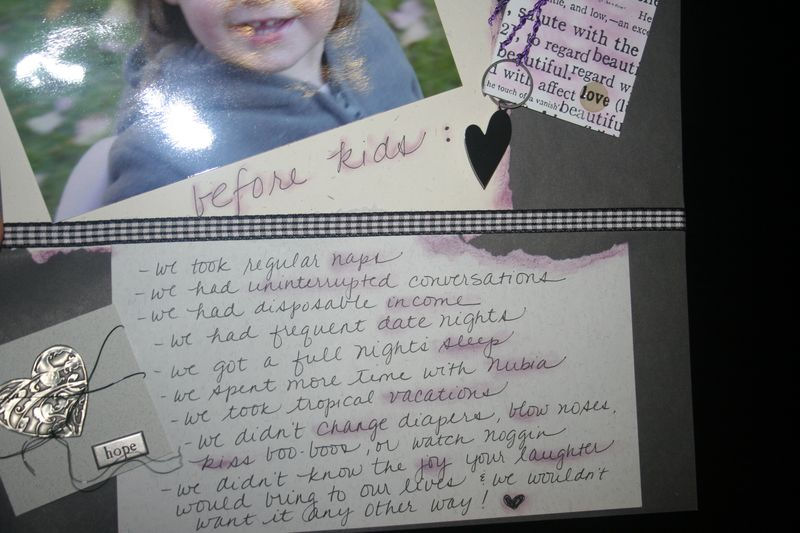 ne, and low,—an exc
salute with the
2), to regard beauti
beautiful. regard w
d with affect love (l
he touch of a vanish' beautifu
before kids :
- we took regular naps
- we had uninterrupted conversations
- we had disposable income
- we had frequent date nights
- we got a full nights sleep
- we spent more time with Nubia
- we took tropical vacations
- we didn't change diapers, blow noses,
kiss boo-boos, or watch noggin
- we didn't know the joy your laughter
would bring to our lives & we wouldn't
want it any other way!
hope